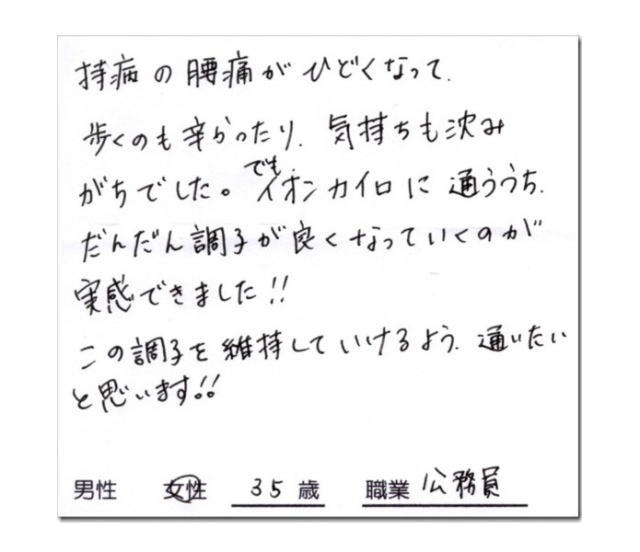 持病の腰痛がひどくなって、
歩くのも辛かったり、気持ちも沈み
がちでした。でもイオンカイロに通ううち、
だんだん調子が良くなっていくのが
実感できました!!
この調子を維持していけるよう、通いたい
と思います!!
男性 女性 35歳 職業 公務員